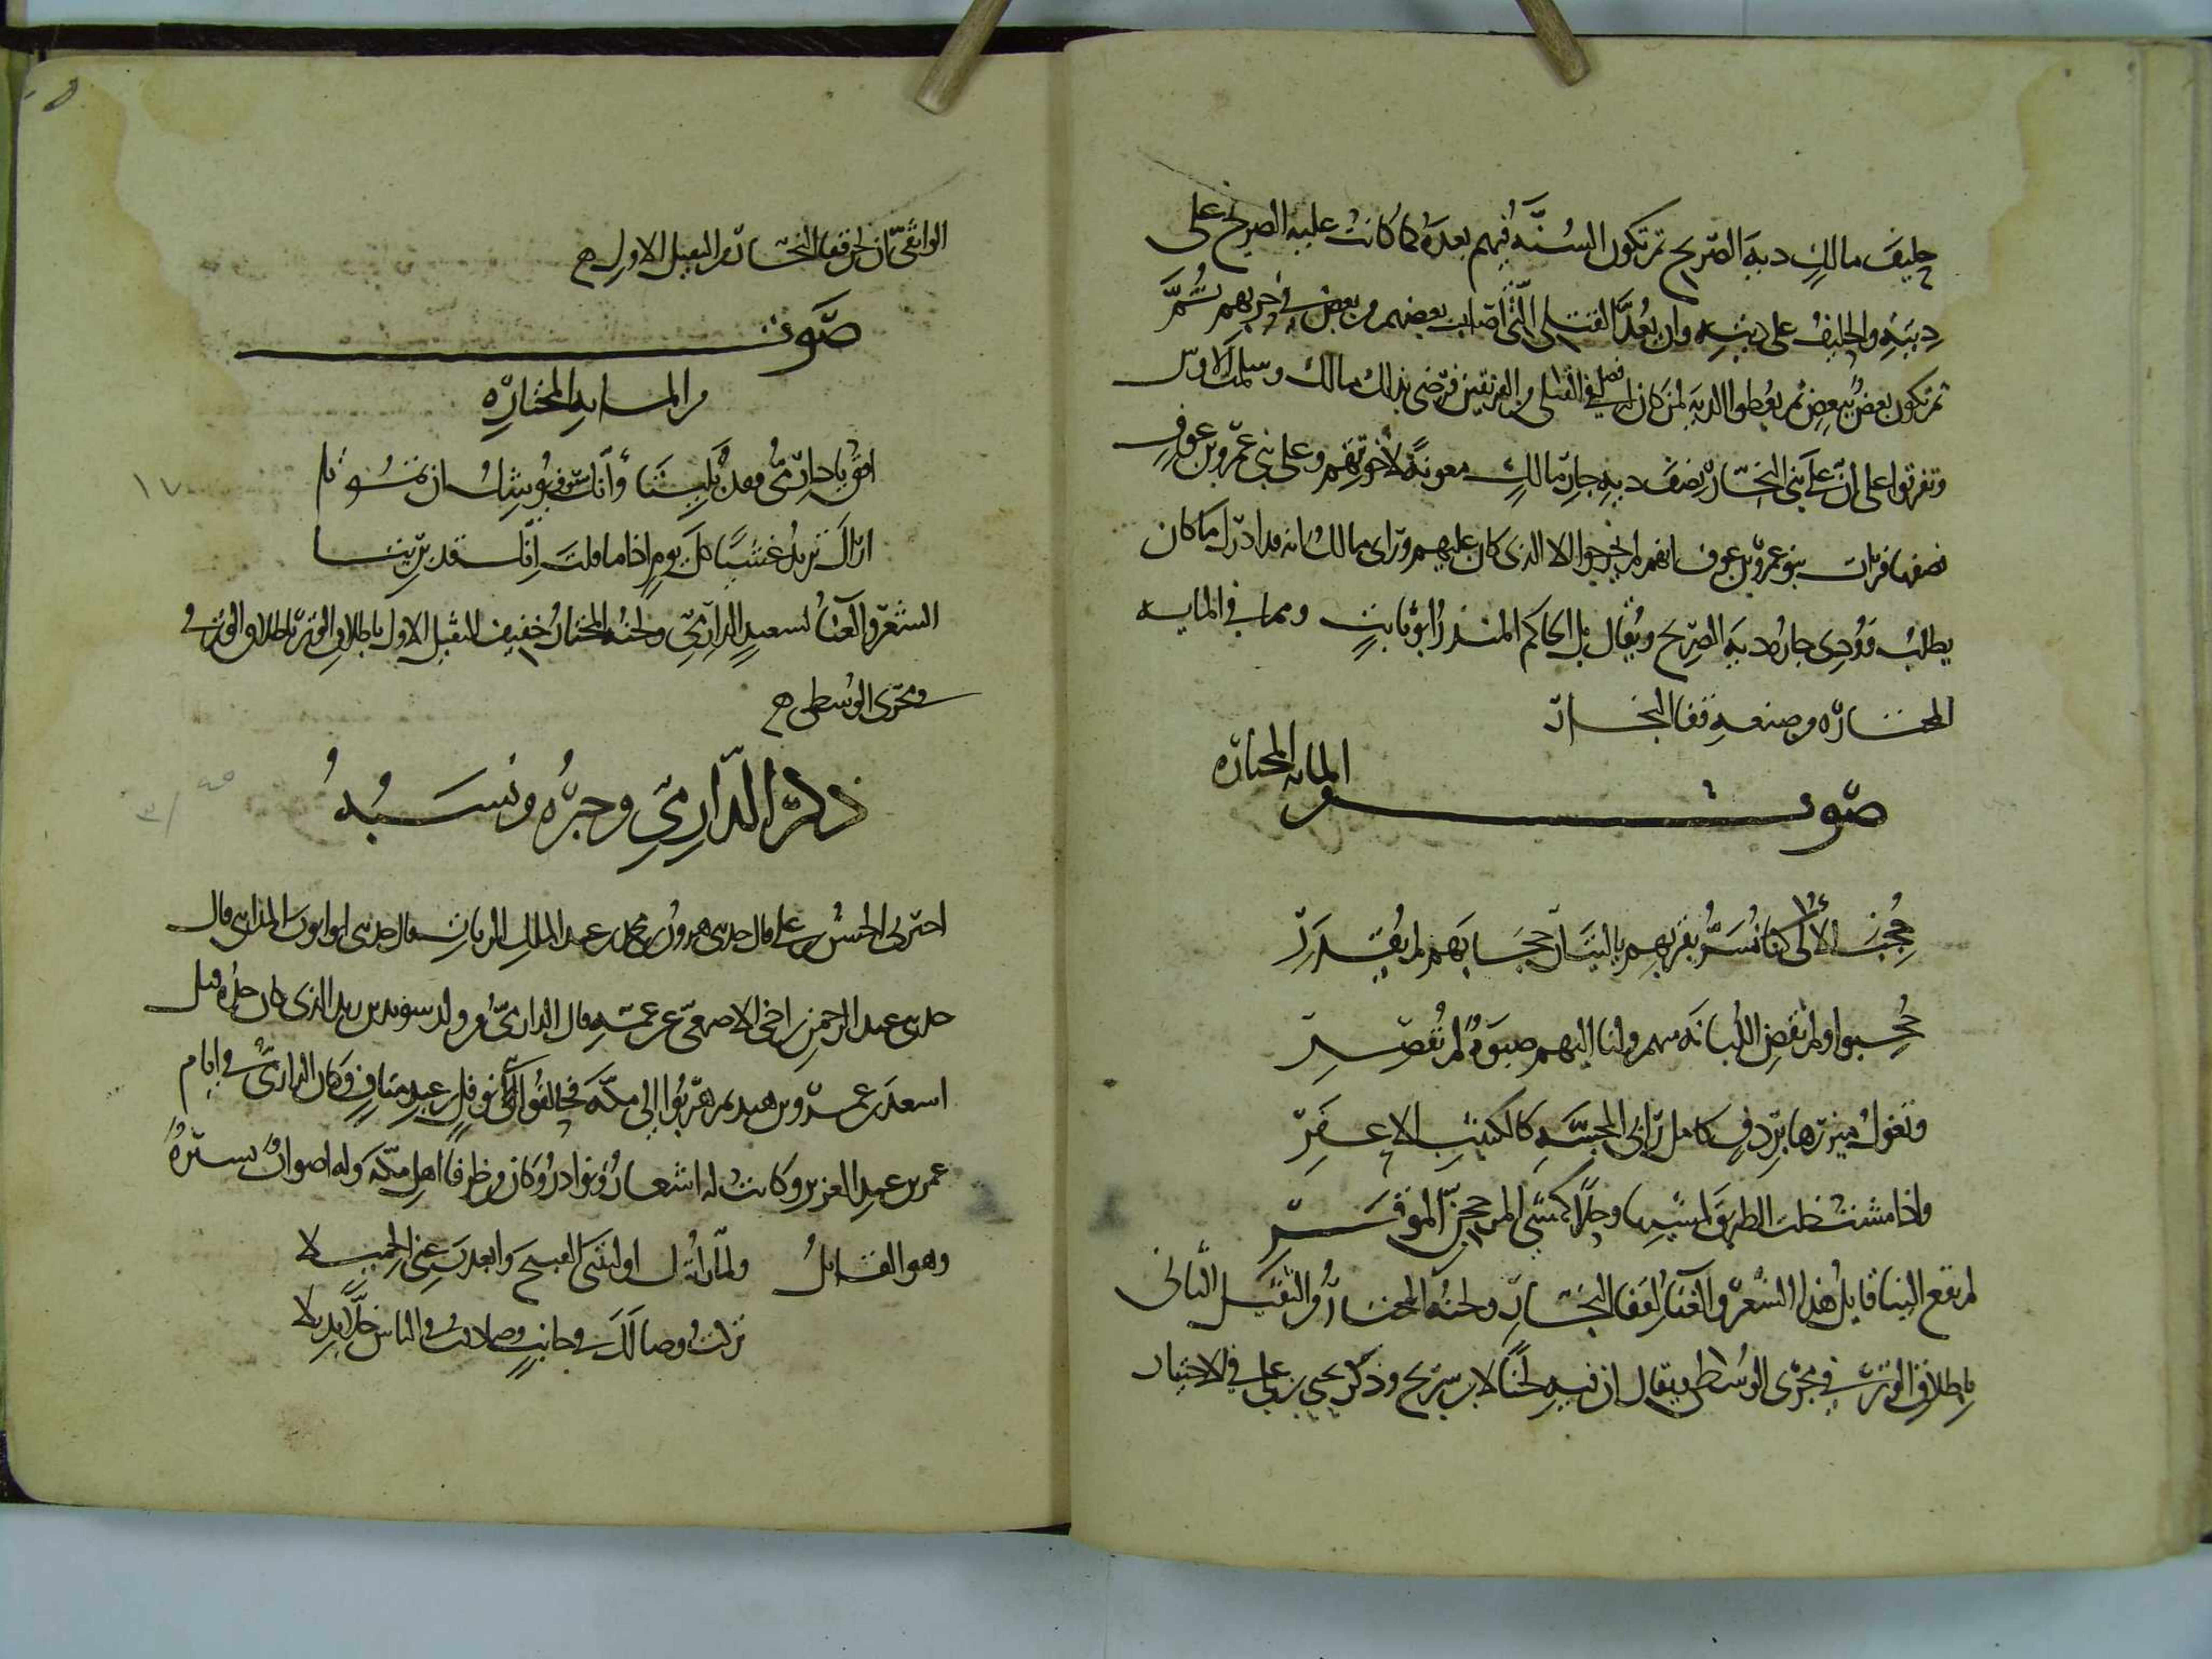 حليف مالك دية الصريح ثم تكون السنة فيهم بعده كما كانت عليه الصريح على
ديته والحليف على ديته وان تعد القتلى التي اصاب بعضهم من بعض في حربهم ثم
ثم تكون بعض ببعض ثم يعطوا الدية لمن كان له فضل في القتلى من الفريقين فرضي بذلك مالك وسلمت الاوس
وتفرقوا على ان على بني النجار نصف دية جار مالك معونة لاخوتهم وعلى بني عمرو بن عوف
نصفها فرات بنو عمرو بن عوف انهم لم يخرجوا الا الذي كان عليهم وراى مالك انه قد ادرك ما كان
يطلب وودي جاره دية الصريح ويقال بل الحاكم المنذر ابو ثابت ومما في المايه
المختاره من صنعه قفا النجار
صوت من المايه المختاره
حجب الألى كنا نسر بقربهم يا ليت ان حجابهم لم يقدر
حجبوا ولم نقض اللبانة منهم ولنا اليهم صبوة لم تقصر
وتغول ميزرها بردف كامل رابي المجسة كالكثيب الاعفر
واذا مشت خلت الطريق لمشيها وحلا كمشي المرجحن الموقر
لم يقع الينا قايل هذا الشعر والغناء لقفا النجار ولحنه المختار من الثقيل الثاني
باطلاق الوتر في مجرى الوسطى ويقال ان فيه لحنا لابن سريج وذكر يحيى بن علي في الاختيار
الواثقي ان لحن قفا النجار من الثقيل الاول
صوت
من المايه المختاره
١٧
افق يا دارمي فقد بليتا وانك سوف يوشك ان تموتا
اراك تزيد غشيا كل يوم اذا ما قلت انك قد بريتا
الشعر والغناء لسعيد الدارمي ولحنه المختار خفيف الثقيل الاول باطلاق الوتر باطلاق الوتر في
في مجرى الوسطى
ذكر الدارمي وخبره ونسبه
اخبرني الحسن بن علي قال حدثني هرون بن محمد بن عبد الملك الزيات قال حدثني ابو ايوب المدائني قال
حدثني عبد الرحمن بن اخي الاصمعي عن عمه قال الدارمي من ولد سويد بن زيد الذي كان جده قتل
اسعد بن عمرو بن هند ثم هربوا الى مكة فحالفوا بني نوفل بن عبد مناف وكان الدارمي في ايام
عمر بن عبد العزيز وكانت له اشعار ونوادر وكان من ظرفاء اهل مكة وله اصوات يسيرة
وهو القائل ولما رايتك اوليتني القبيح وابعدت عني الجميلا
تركت وصالك في جانب وصادفت في الناس خلا بديلا